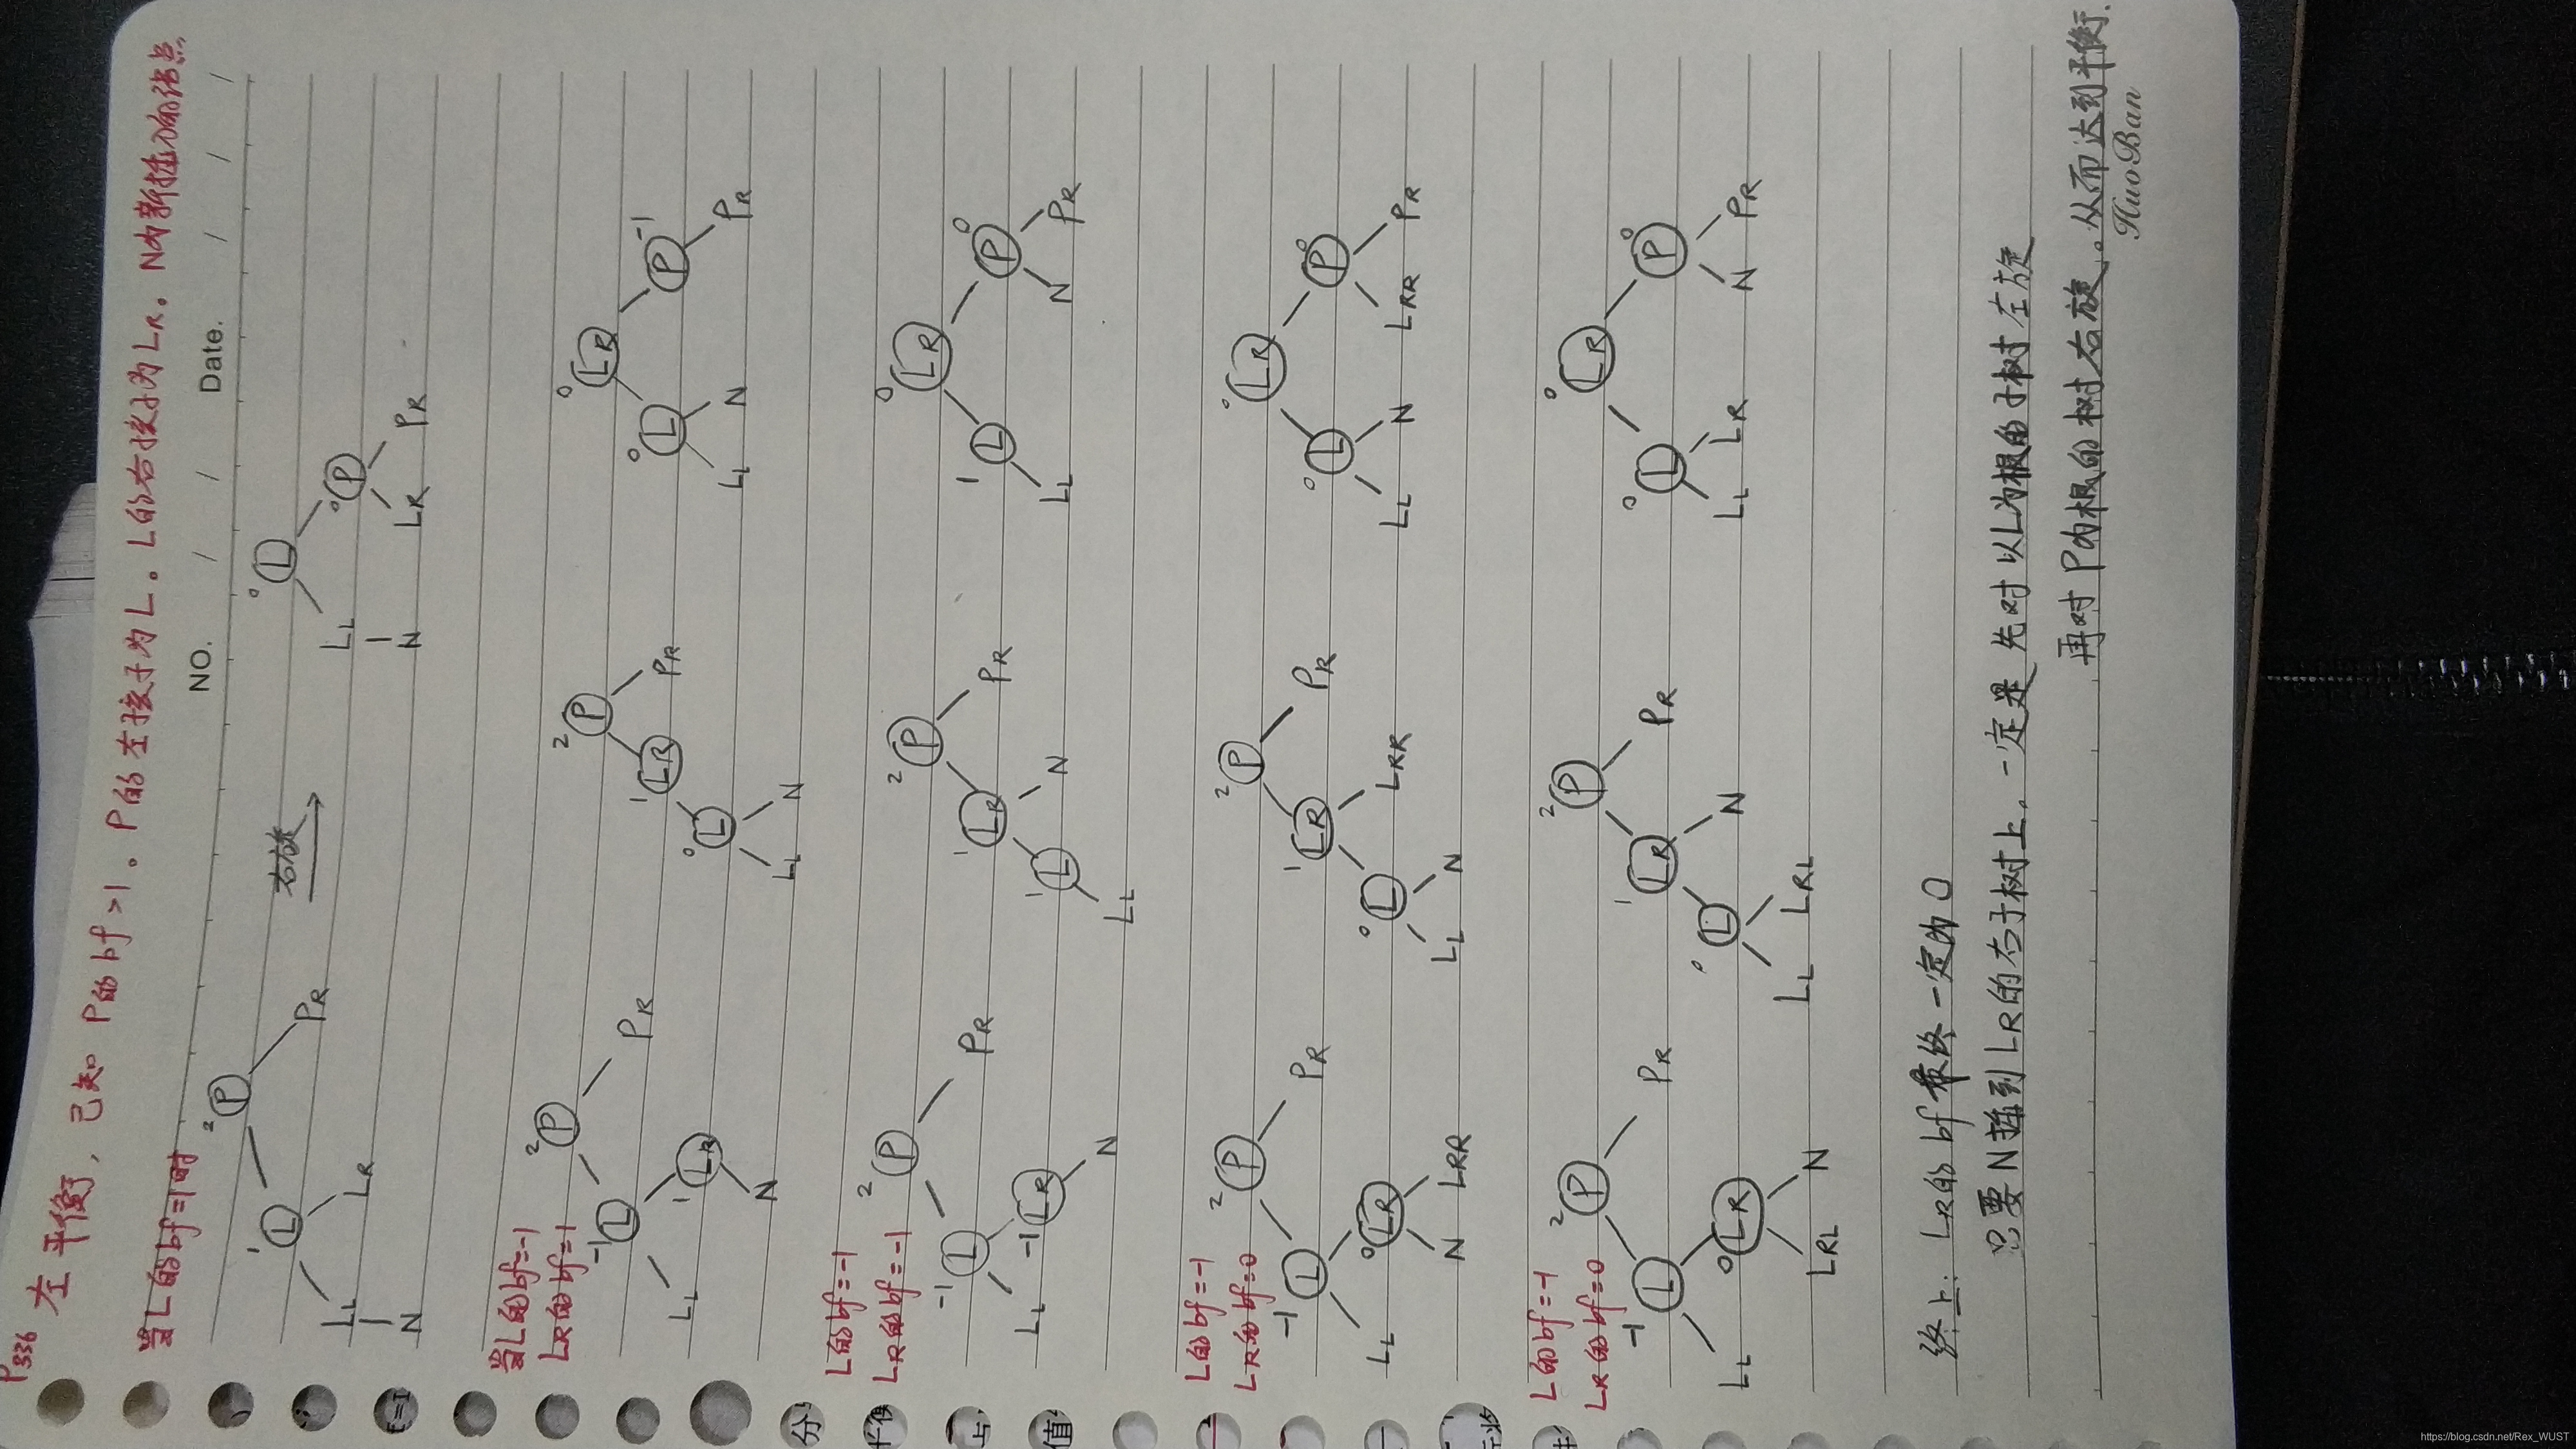 P336 左平衡, 已知 P的bf>1。P的左孩子为L。L的右孩子为LR。N为新插入的结点
NO.
Date. / / / / /
当L的bf=1时
2 P
1 L
PR
LL
LR
N
右旋
0 L
LL
0 P
N
LR
PR
当L的bf=-1
LR的bf=1
2 P
-1 L
PR
LL
1 LR
N
2 P
1 LR
PR
0 L
LL
N
0 LR
0 L
P -1
LL
N
PR
L的bf=-1
LR的bf=-1
2 P
-1 L
PR
LL
-1 LR
N
2 P
1 LR
PR
1 L
N
LL
0 LR
1 L
P 0
LL
N
PR
L的bf=-1
LR的bf=0
2 P
-1 L
PR
LL
0 LR
N
LRR
2 P
1 LR
PR
0 L
LRR
LL
N
0 LR
0 L
P 0
LL
N
LRR
PR
L的bf=-1
LR的bf=0
2 P
-1 L
PR
LL
0 LR
LRL
N
2 P
1 LR
PR
0 L
N
LL
LRL
0 LR
0 L
P 0
LL
LR
N
PR
终上: LR的bf最终一定为0
只要N插到LR的右子树上, 一定是先对以L为根的子树左旋
再对P为根的树右旋。从而达到平衡.
HuoBan
分
上,
值
https://blog.csdn.net/Rex_WUST